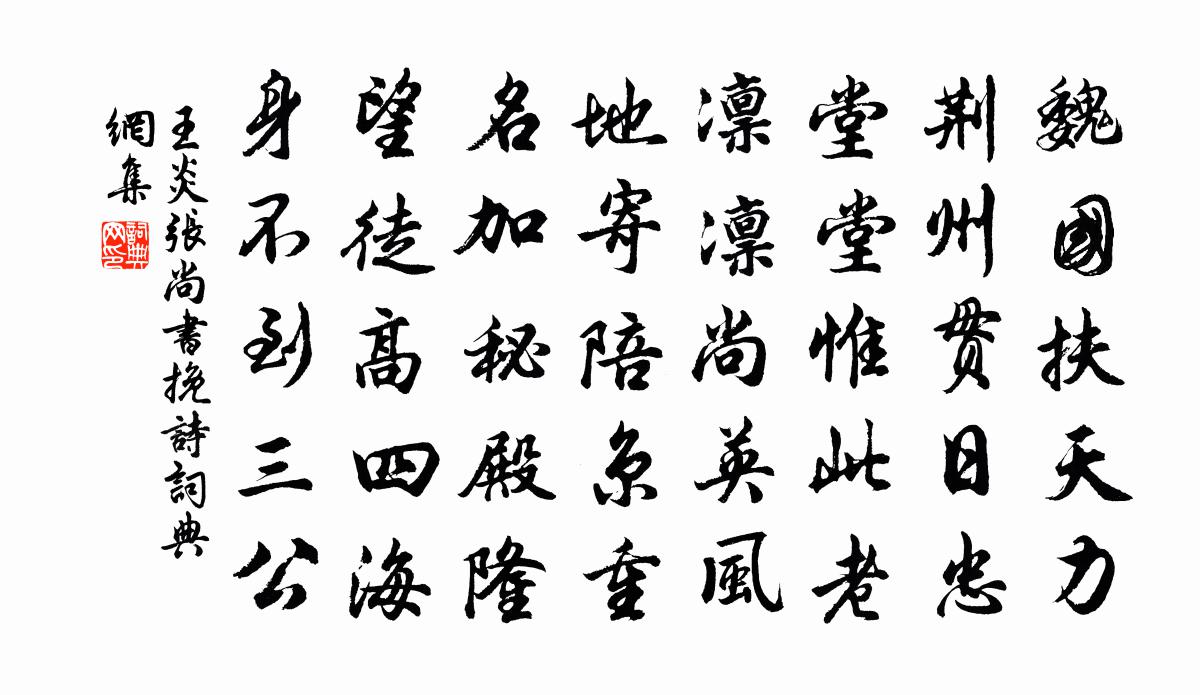 魏國扶天力
荆州贯日忠
堂堂惟此老
凛凛尚英風
地寄陪京重
名加秘殿隆
望徒高四海
身不到三公
王炎張尚書挽詩詞典
網集
詞典
网印